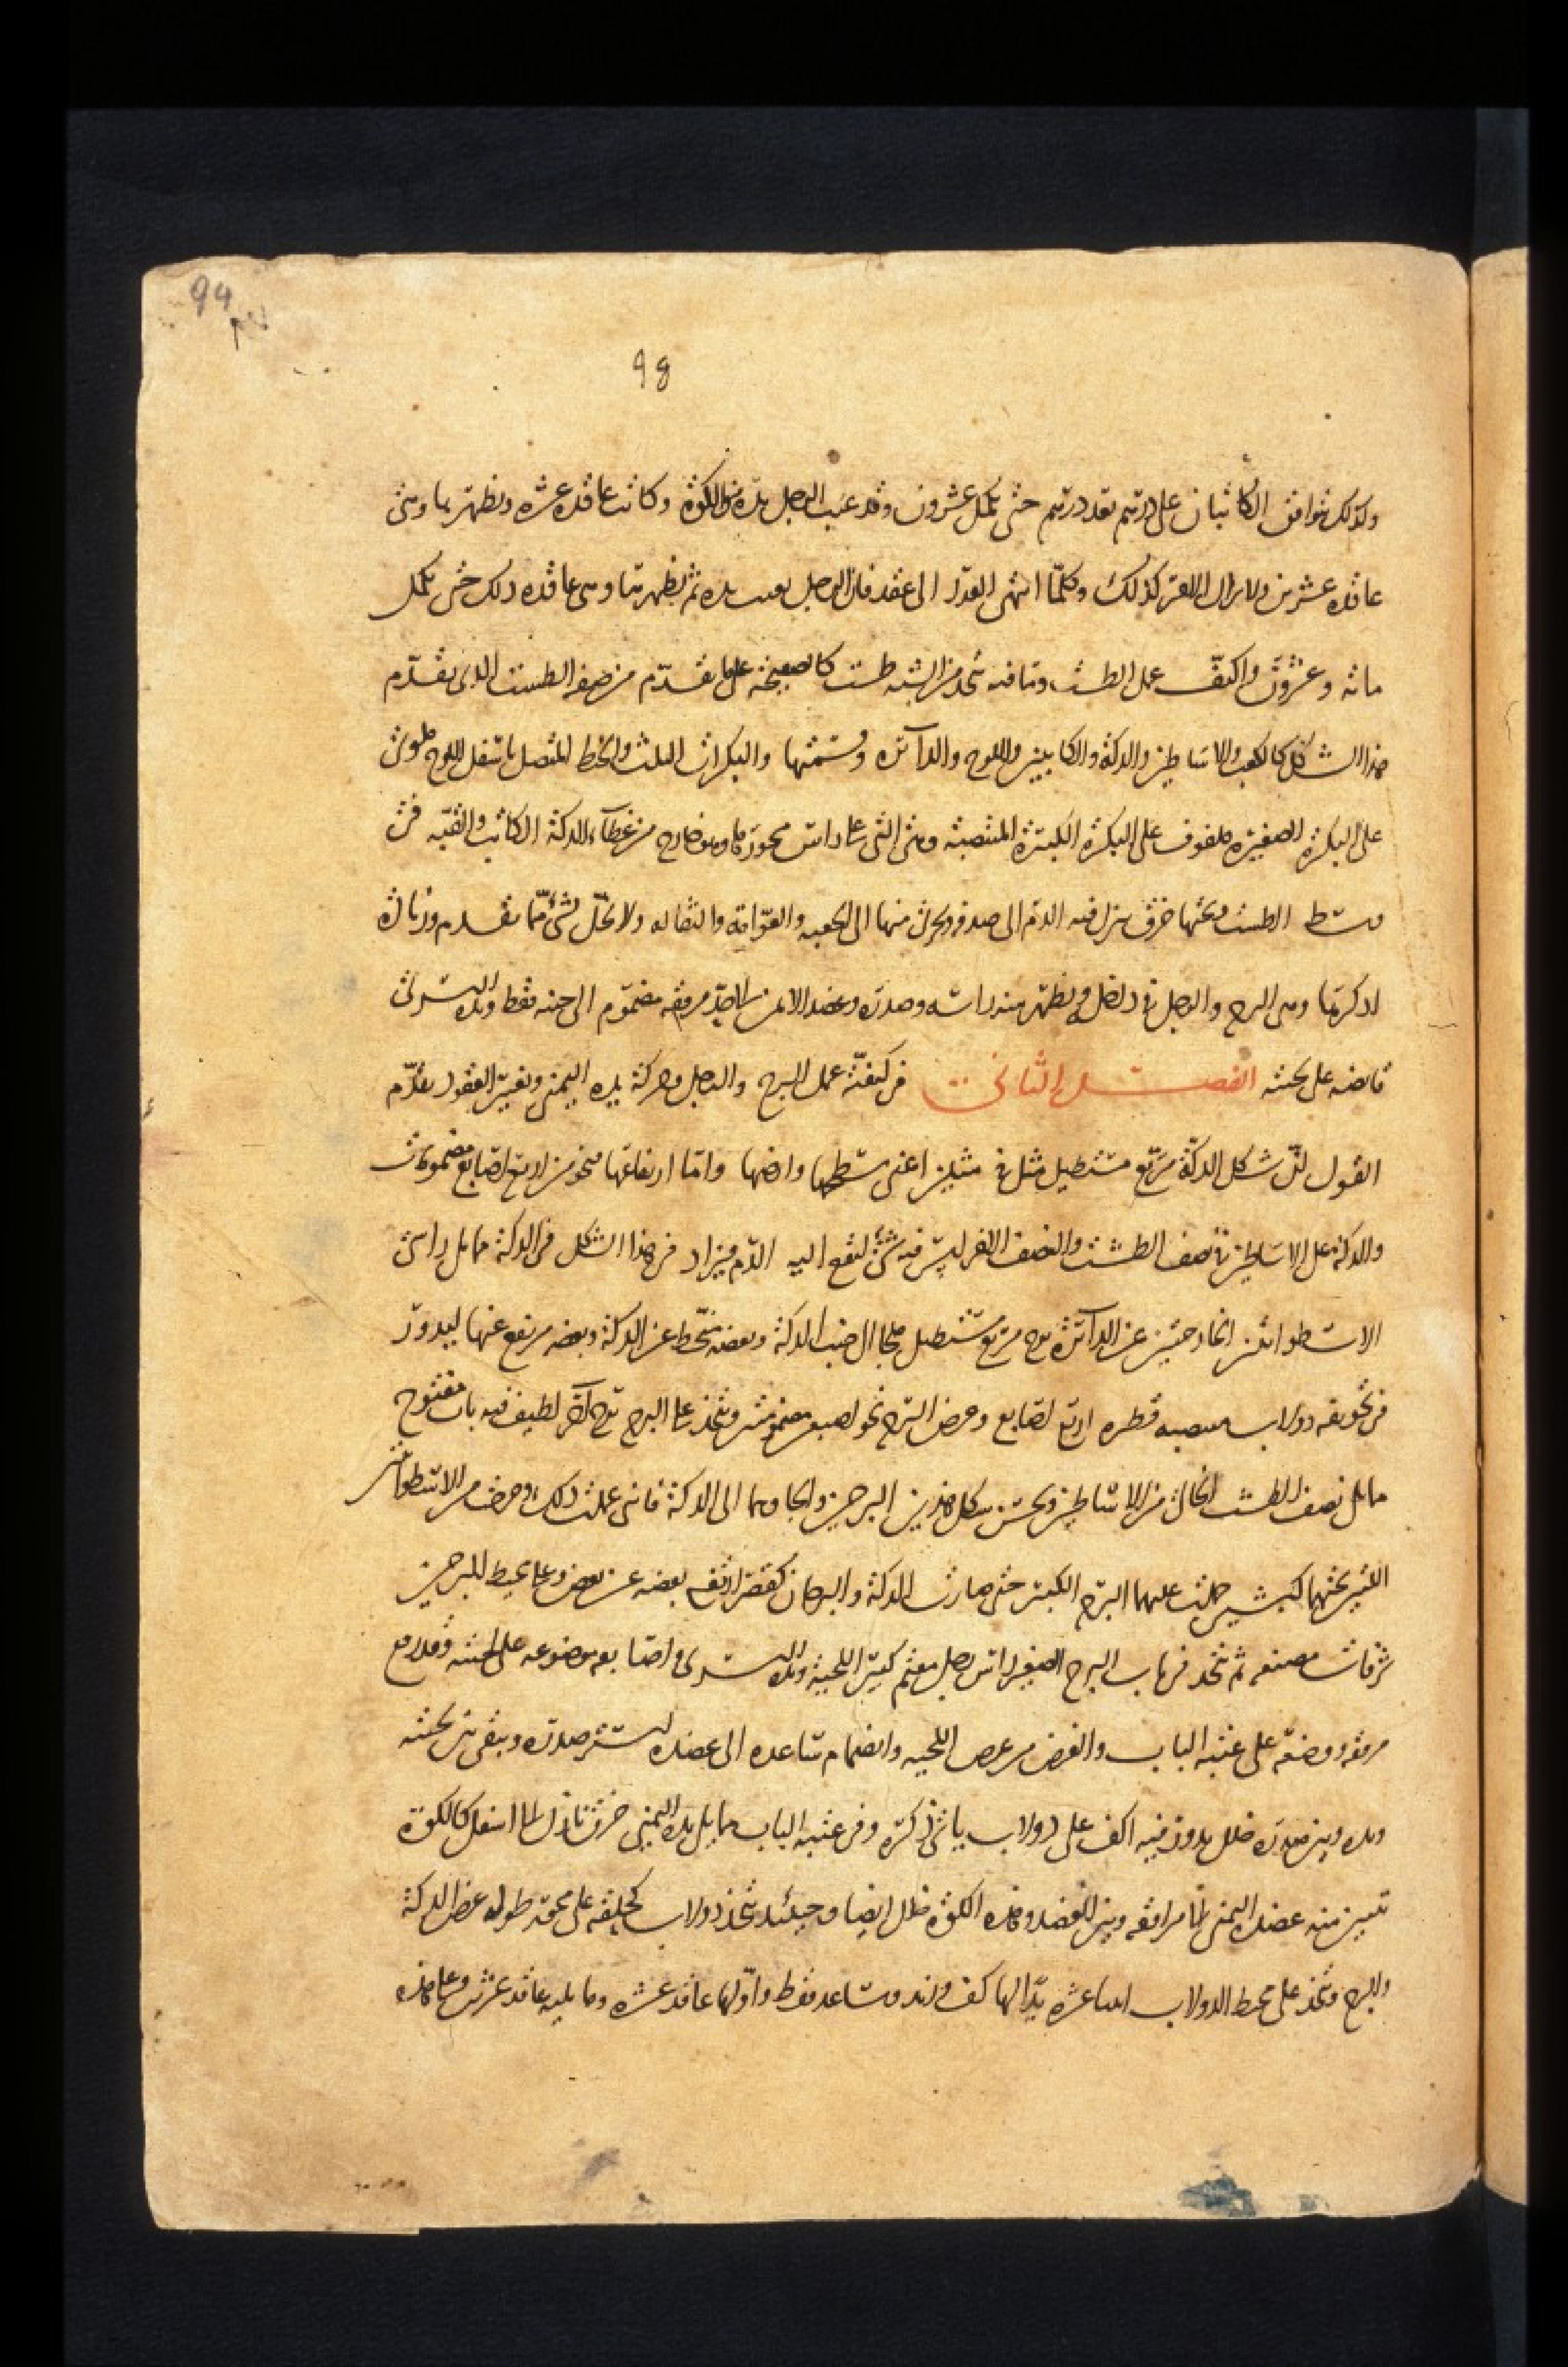 94
98
وكذلك توافق الكاتبان على درهم بعد درهم حتى يكمل عشرون وقد غيب الرجل يده في الكوة وكانت عاقدة عشرة ويظهرها وهي
عاقدة عشرين ولا يزال الامر كذلك وكلما انتهى العدد الى عقد فان الرجل يغيب يده ثم يظهرها وهي عاقدة ذلك حتى يكمل
مائة وعشرون واكيف عمل الطست وما فيه يتخذ من الشبه طست كالصحيحة على ما تقدم من صفة الطست الذي تقدم
هذا الشكل كالكعب والاساطين والدكة والكاتبين واللوح والدائرة وقسمتها والبكرات الثلث والخيط المتصل باسفل اللوح ملوى
على البكرة الصغيرة ملفوف على البكرة الكبيرة المنتصبة وهي التي على راس محورها وهو خارج من غطاء الدكة الكاتب والثقبة في
وسط الطست وتحتها خرق ينزل فيه الدم الى صدفة ويجري منها الى الكعب والعوامة والثقالة ولا يخل بشئ مما تقدم وزيادة
اذكرها وهي البرج والرجل في داخله ويظهر منه راسه وصدره وعضد الايمن الى حد مرفقه مضموم الى جنبه فقط ويده اليسرى
قابضة على لحيته الفصل الثاني في كيفية عمل البرج والرجل وحركة يده اليمنى وتغيير العقود تقدم
القول بان شكل الدكة مربع مستطيل مثل في مثلين اعني سطحها وارضها واما ارتفاعها فنحو من اربع اصابع مضمومات
والدكة على الاساطين في نصف الطست والنصف الاخر ليس فيه شئ ليقع اليه الدم فيزاد في هذا الشكل في الدكة مما يلي راسي
الاسطوانتين الخارجتين عن الدائرة برج مربع مستطيل ملجا الى جنب الدكة وبعضه منحط عن الدكة وبعضه مرتفع عنها ليدور
في تجويفه دولاب منتصب قطره اربع اصابع وعرض البرج نحو اصبعين مضمومتين ويتخذ على البرج برج اخر لطيف فيه باب مفتوح
مما يلي نصف الطست الخالي من الاساطين ويحسن شكل هذين البرجين والجاوهما الى الدكة فاني عملت ذلك وعرض من الاسطوانتين
اللتين تحتهما كبشين حملت عليهما البرج الكبير حتى صارت الدكة والبرجان كقصر ارتفع بعضه عن بعض وعلى محيط البرجين
شرفات مصنعة ثم يتخذ في باب البرج الصغير راس رجل معمم كبير اللحية ويده اليسرى واصابعه موضوعة على لحيته وقد رفع
مرفقه ووضعه على عتبة الباب والغرض من عرض اللحية وانضمام ساعده الى عضده ليستتر صدره ويبقى بين لحيته
ويده وبين صدره خلل يدور فيه اكف على دولاب ياتي ذكره وفي عتبة الباب مما يلي يده اليمنى خرق نازل الى اسفل كالكوة
تبين منه عضده اليمنى الى مرافقه وبين العضد وهذه الكوة خلل ايضا وحينئذ يتخذ دولاب كحلقة على محور طوله عرض الدكة
والبرج ويتخذ على محيط الدولاب اثنا عشرة يدا لها كف وزند وساعد فقط واولها عاقد عشرة وما يليه عاقد عشرين وعلى هذه